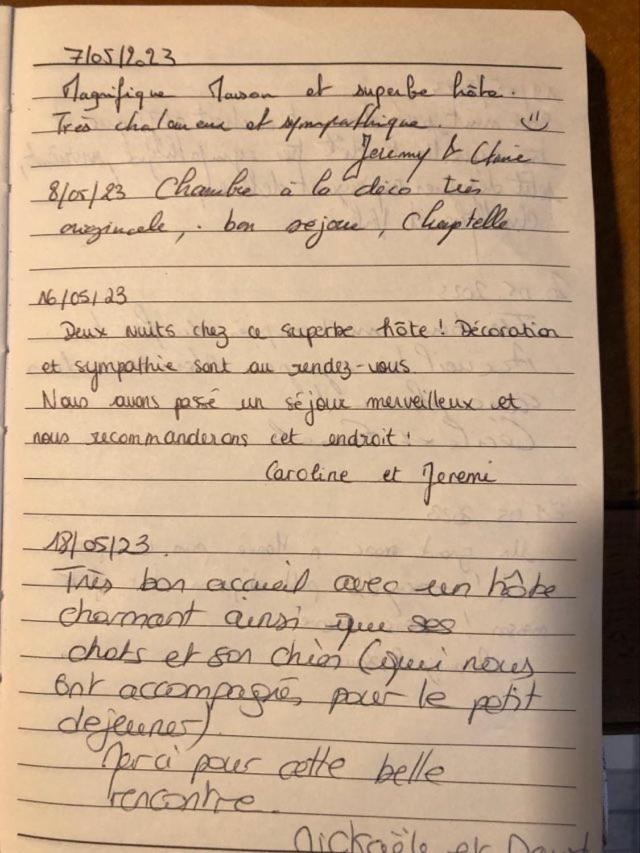 7/05/2023
Magnifique Maison et superbe hôte.
Très chaleureux et sympathique.
Jeremy & Claire
8/05/23 Chambre à la déco très
originale, bon séjour, Chaptelle
16/05/23
Deux nuits chez ce superbe hôte ! Décoration
et sympathie sont au rendez-vous
Nous avons passé un séjour merveilleux et
nous recommanderons cet endroit !
Caroline et Jeremi
18/05/23.
Très bon accueil avec un hôte
charmant ainsi que ses
chats et son chien (qui nous
ont accompagnés pour le petit
dejeuner)
Merci pour cette belle
rencontre.
Mickaële et